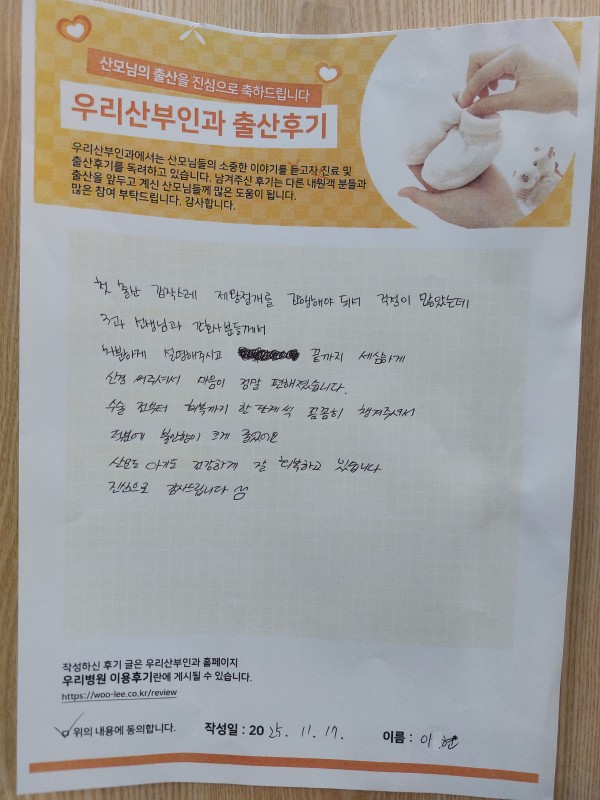 산모님의 출산을 진심으로 축하드립니다
우리산부인과 출산후기
우리산부인과에서는 산모님들의 소중한 이야기를 듣고자 진료 및
출산후기를 독려하고 있습니다. 남겨주신 후기는 다른 내원객 분들과
출산을 앞두고 계신 산모님들께 많은 도움이 됩니다.
많은 참여 부탁드립니다. 감사합니다.
첫 출산 갑작스레 제왕절개를 강행해야 되서 걱정이 많았는데
선생님과 간호사분들께서
차분하게 설명해주시고 끝까지 세심하게
신경 써주셔서 마음이 정말 편해졌습니다.
수술 전부터 회복까지 한 단계씩 꼼꼼히 챙겨주셔서
덕분에 불안함이 크게 줄었어요
산모도 아기도 건강하게 잘 회복하고 있습니다
진심으로 감사드립니다
작성하신 후기 글은 우리산부인과 홈페이지
우리병원 이용후기란에 게시될 수 있습니다.
https://woo-lee.co.kr/review
위의 내용에 동의합니다. 작성일 : 2025. 11. 17. 이름 : 이 현